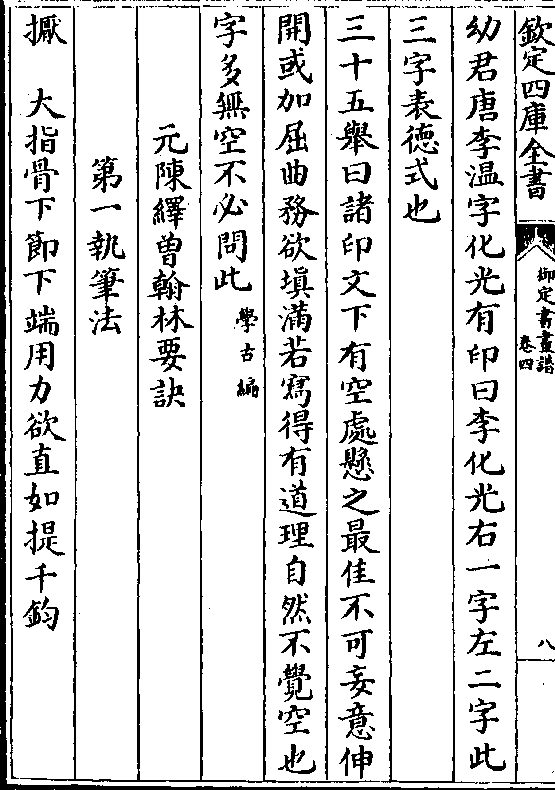 欽定四庫全書
御定書畫譜
卷四
八
幼君唐李溫字化光有印曰李化光右一字左二字此
三字表德式也
三十五舉曰諸印文下有空處懸之最佳不可妄意伸
開或加屈曲務欲填滿若寫得有道理自然不覺空也
字多無空不必問此
學古編
元陳繹曾翰林要訣
第一執筆法
擫　大指骨下節下端用力欲直如提千鈞